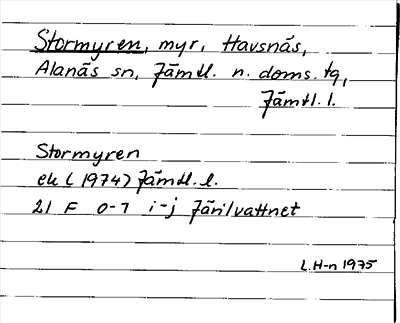 Stormyren, myr, Havsnäs,
Alanäs sn, Jämtl. n. doms. tg,
Jämtl. l.
Stormyren
ek (1974) Jämtl. l.
21 F 0-1 i-j Järilvattnet
L. H-n 1975